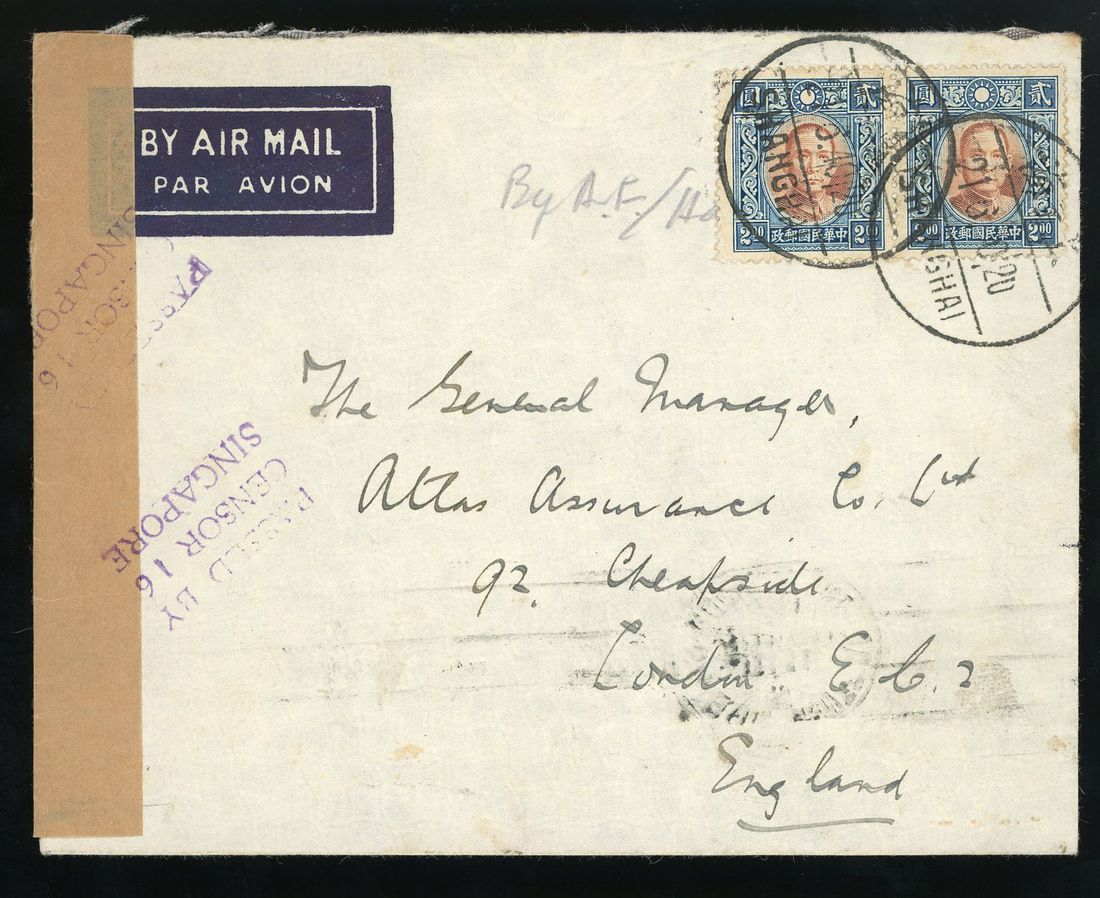 BY AIR MAIL
PAR AVION
By A.F./Ha
圓 貳
2.00 政郵國民華中 2.00
圓 貳
2.00 政郵國民華中 2.00
SHANGHAI
SHANGHAI
PASSED BY
CENSOR 16
SINGAPORE
PASSED BY
CENSOR 16
SINGAPORE
The General Manager,
Atlas Assurance Co. Ltd
92, Cheapside
London E.C.2
England